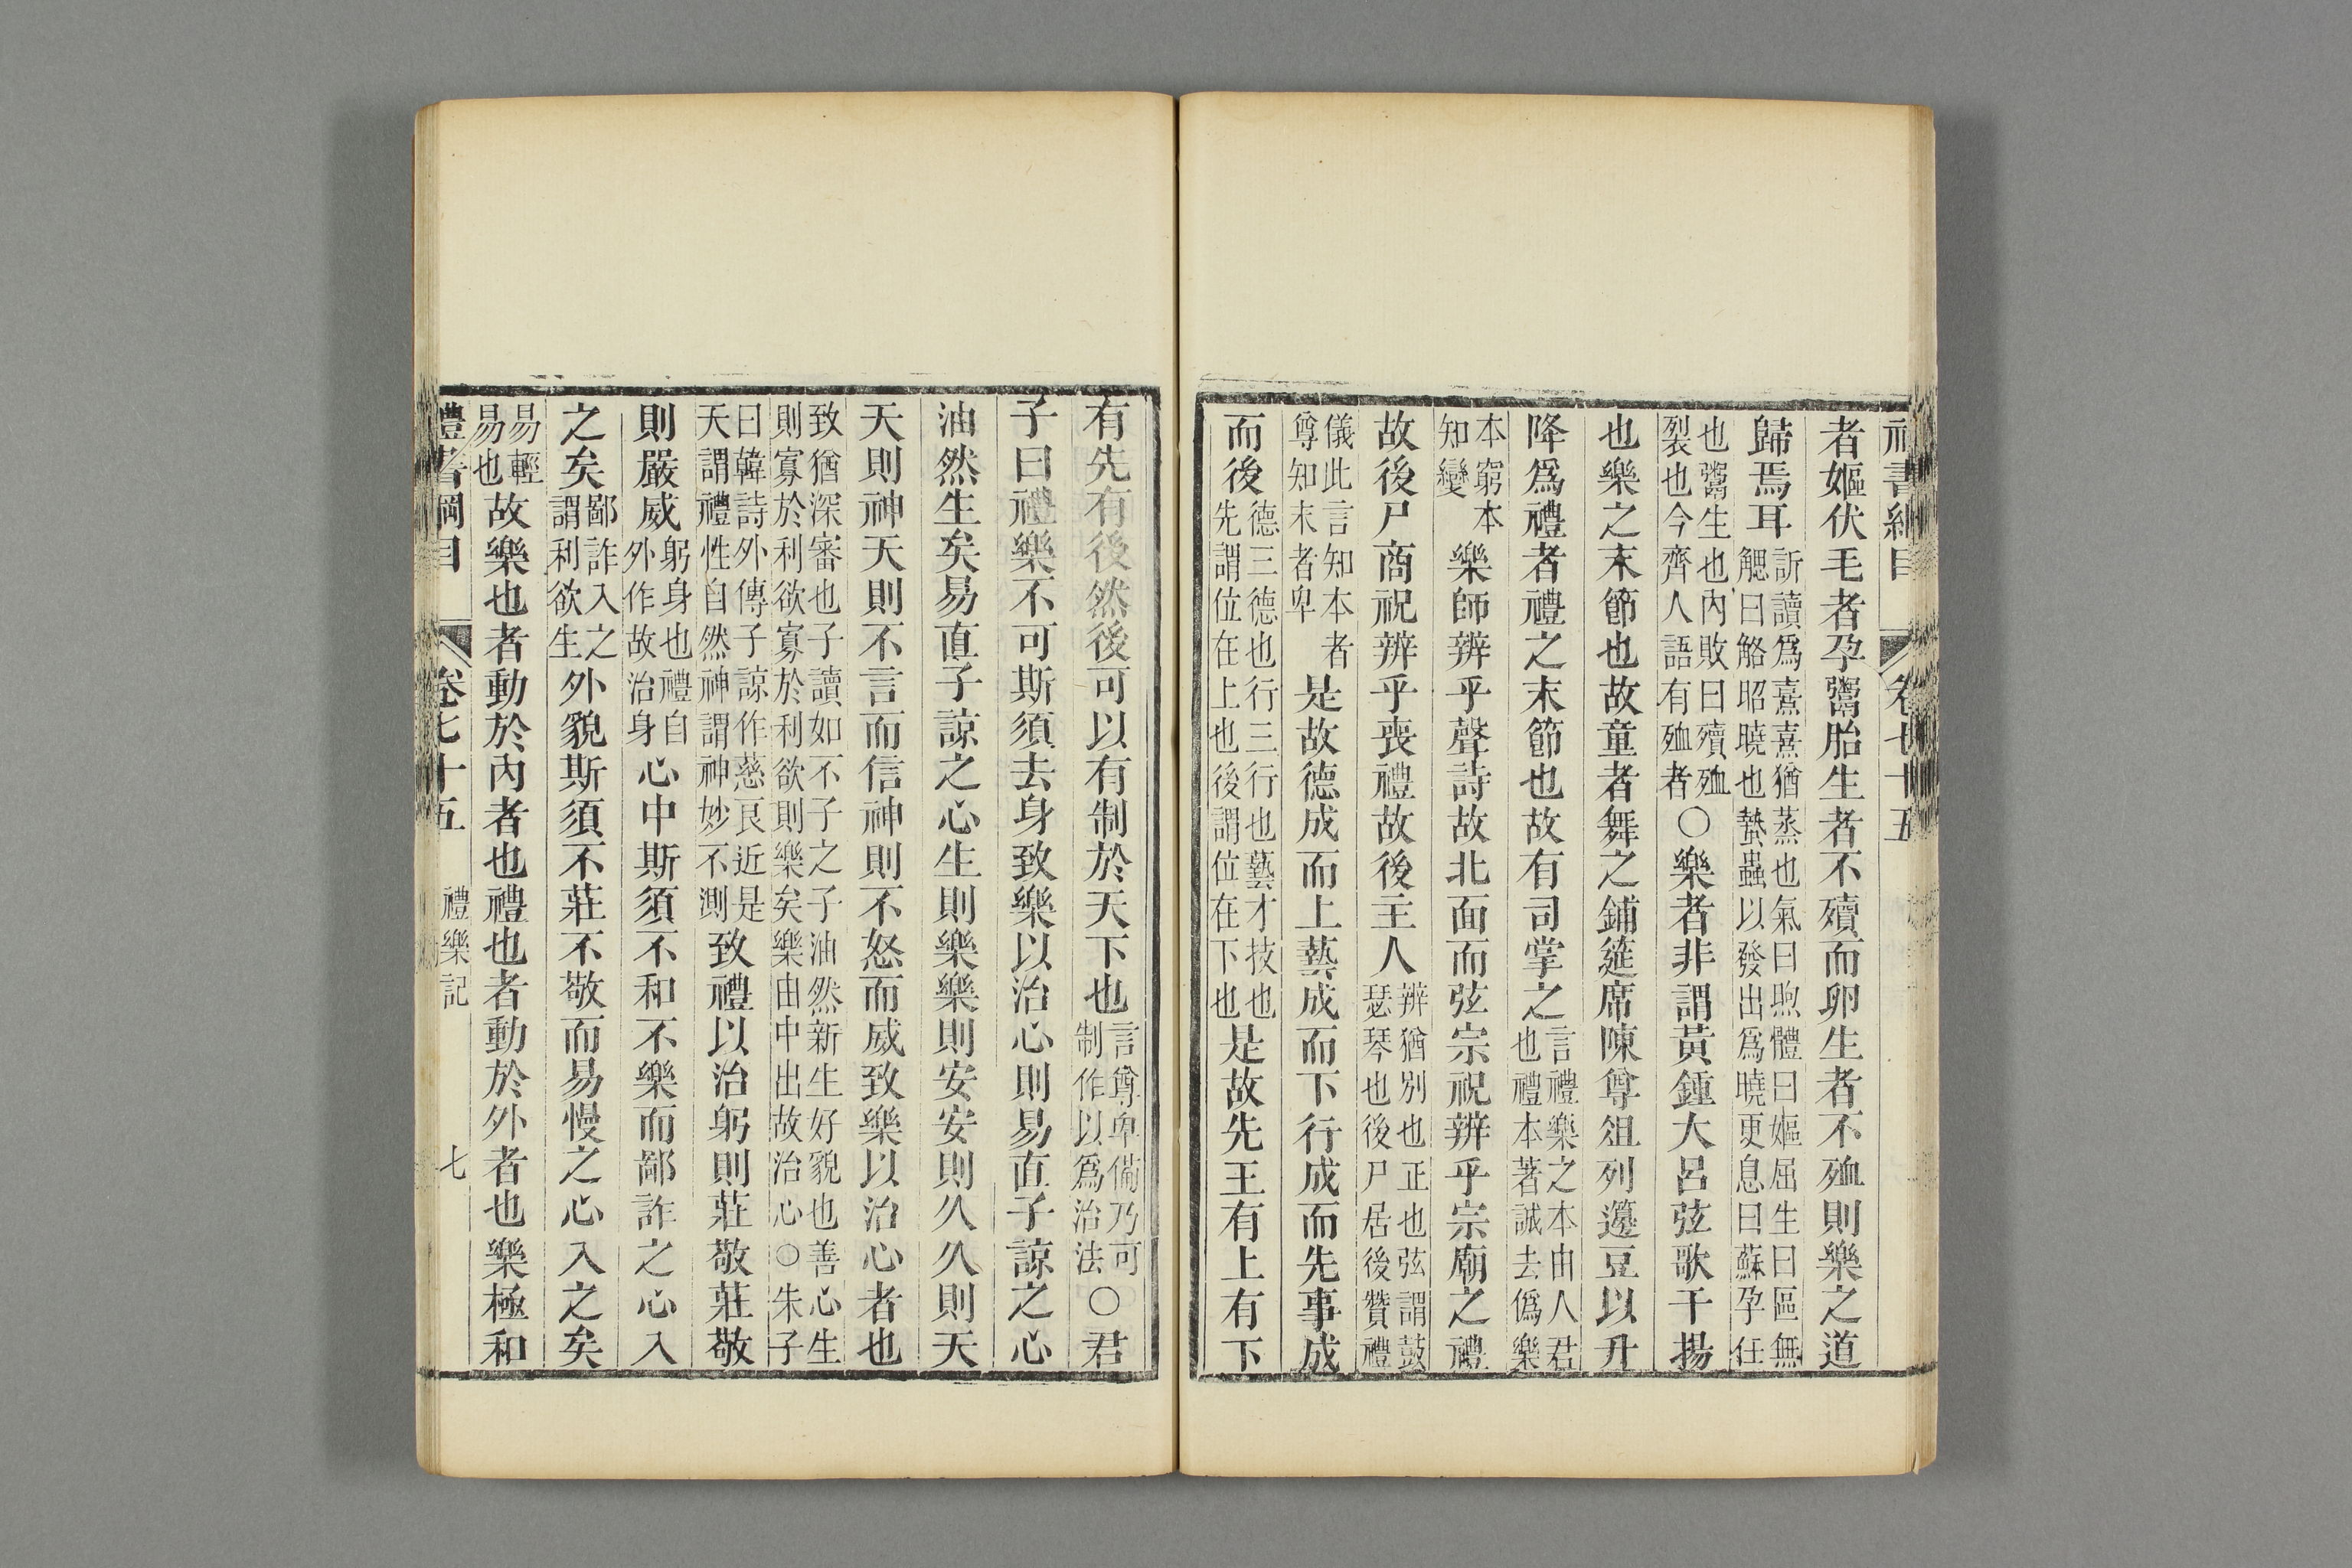 禮書綱目 卷七十五
者嫗伏毛者孕鬻胎生者不殰而卵生者不殈則樂之道
歸焉耳訢讀爲熹熹猶蒸也氣曰煦體曰嫗屈生曰區無䚡曰觡昭曉也蟄蟲以發出爲曉更息曰蘇孕任
也鬻生也內敗曰殰殈裂也今齊人語有殈者○樂者非謂黃鍾大呂弦歌干揚
也樂之末節也故童者舞之鋪筵席陳尊俎列籩豆以升
降爲禮者禮之末節也故有司掌之言禮樂之本由人君也禮本著誠去僞樂
本窮本知變樂師辨乎聲詩故北面而弦宗祝辨乎宗廟之禮
故後尸商祝辨乎喪禮故後主人辨猶別也正也弦謂鼓瑟琴也後尸居後贊禮
儀此言知本者尊知末者卑是故德成而上藝成而下行成而先事成
而後德三德也行三行也藝才技也先謂位在上也後謂位在下也是故先王有上有下
有先有後然後可以有制於天下也言尊卑備乃可制作以爲治法○君
子曰禮樂不可斯須去身致樂以治心則易直子諒之心
油然生矣易直子諒之心生則樂樂則安安則久久則天
天則神天則不言而信神則不怒而威致樂以治心者也
致猶深審也子讀如不子之子油然新生好貌也善心生則寡於利欲寡於利欲則樂矣樂由中出故治心○朱子
曰韓詩外傳子諒作慈良近是天謂禮性自然神謂神妙不測致禮以治躬則莊敬莊敬
則嚴威躬身也禮自外作故治身心中斯須不和不樂而鄙詐之心入
之矣鄙詐入之謂利欲生外貌斯須不莊不敬而易慢之心入之矣
易輕易也故樂也者動於內者也禮也者動於外者也樂極和
禮書綱目 卷七十五 禮樂記 七